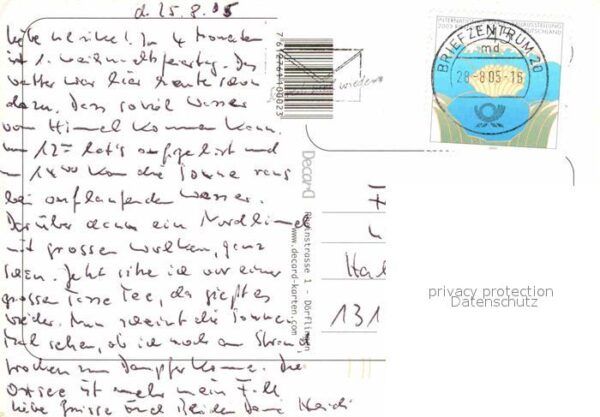 d. 25.8.05
Liebe Ulrike! In 4 Monaten
ist 1. Weihnachtsfeiertag. Das
Wetter war hier heute schon
dazu. Dass soviel Wasser
vom Himmel kommen kann.
um 12⁰⁰ hat's aufgehört und
um 14⁰⁰ kam die Sonne raus
bei auflaufendem Wasser.
Darüber dann ein Nordhimmel
mit grossen Wolken, ganz
schön. Jetzt sitze ich vor einer
grossen Tasse Tee, da gießt es
wieder. Nun scheint die Sonne
mal sehen, ob ich noch am Strand
trocken zum Dampfer komme. Die
Ostsee ist mehr mein Fall
Liebe Grüsse Euch Beiden Deine Heidi
7612244100023
Decard
Rheinstrasse 1 - Dörflingen
www.decard-karten.com
INTERNATIONALE GARTENBAUAUSSTELLUNG
2003 DEUTSCHLAND
BRIEFZENTRUM 20
md
28.-8.05-16
131
privacy protection
Datenschutz